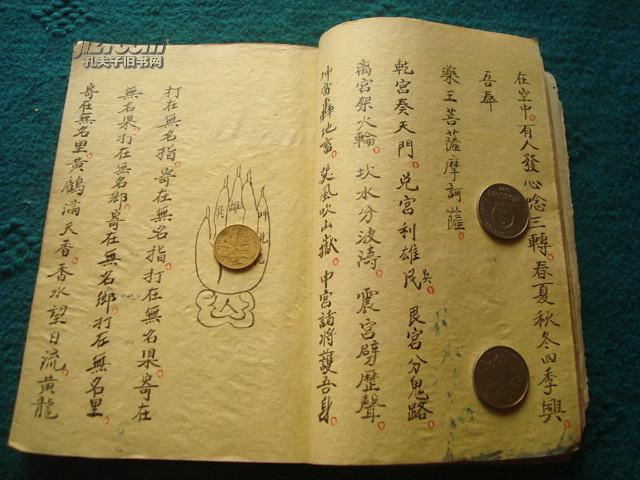 在空中有人發心唸三轉春夏秋冬四季興
吾奉
藥王菩薩摩訶薩
乾宮奏天門兌宮利雄民艮宮分鬼路
離宮架火輪坎水分波濤震宮劈歷聲
坤宮轟地畜巽風吹山嶽中宮諸將護吾身
打在無名指寄在無名指打在無名果寄在
無名果打在無名鄉寄在無名鄉打在無名里
寄在無名里黃鶴滿天香香水望日流黃龍
孔夫子旧书网